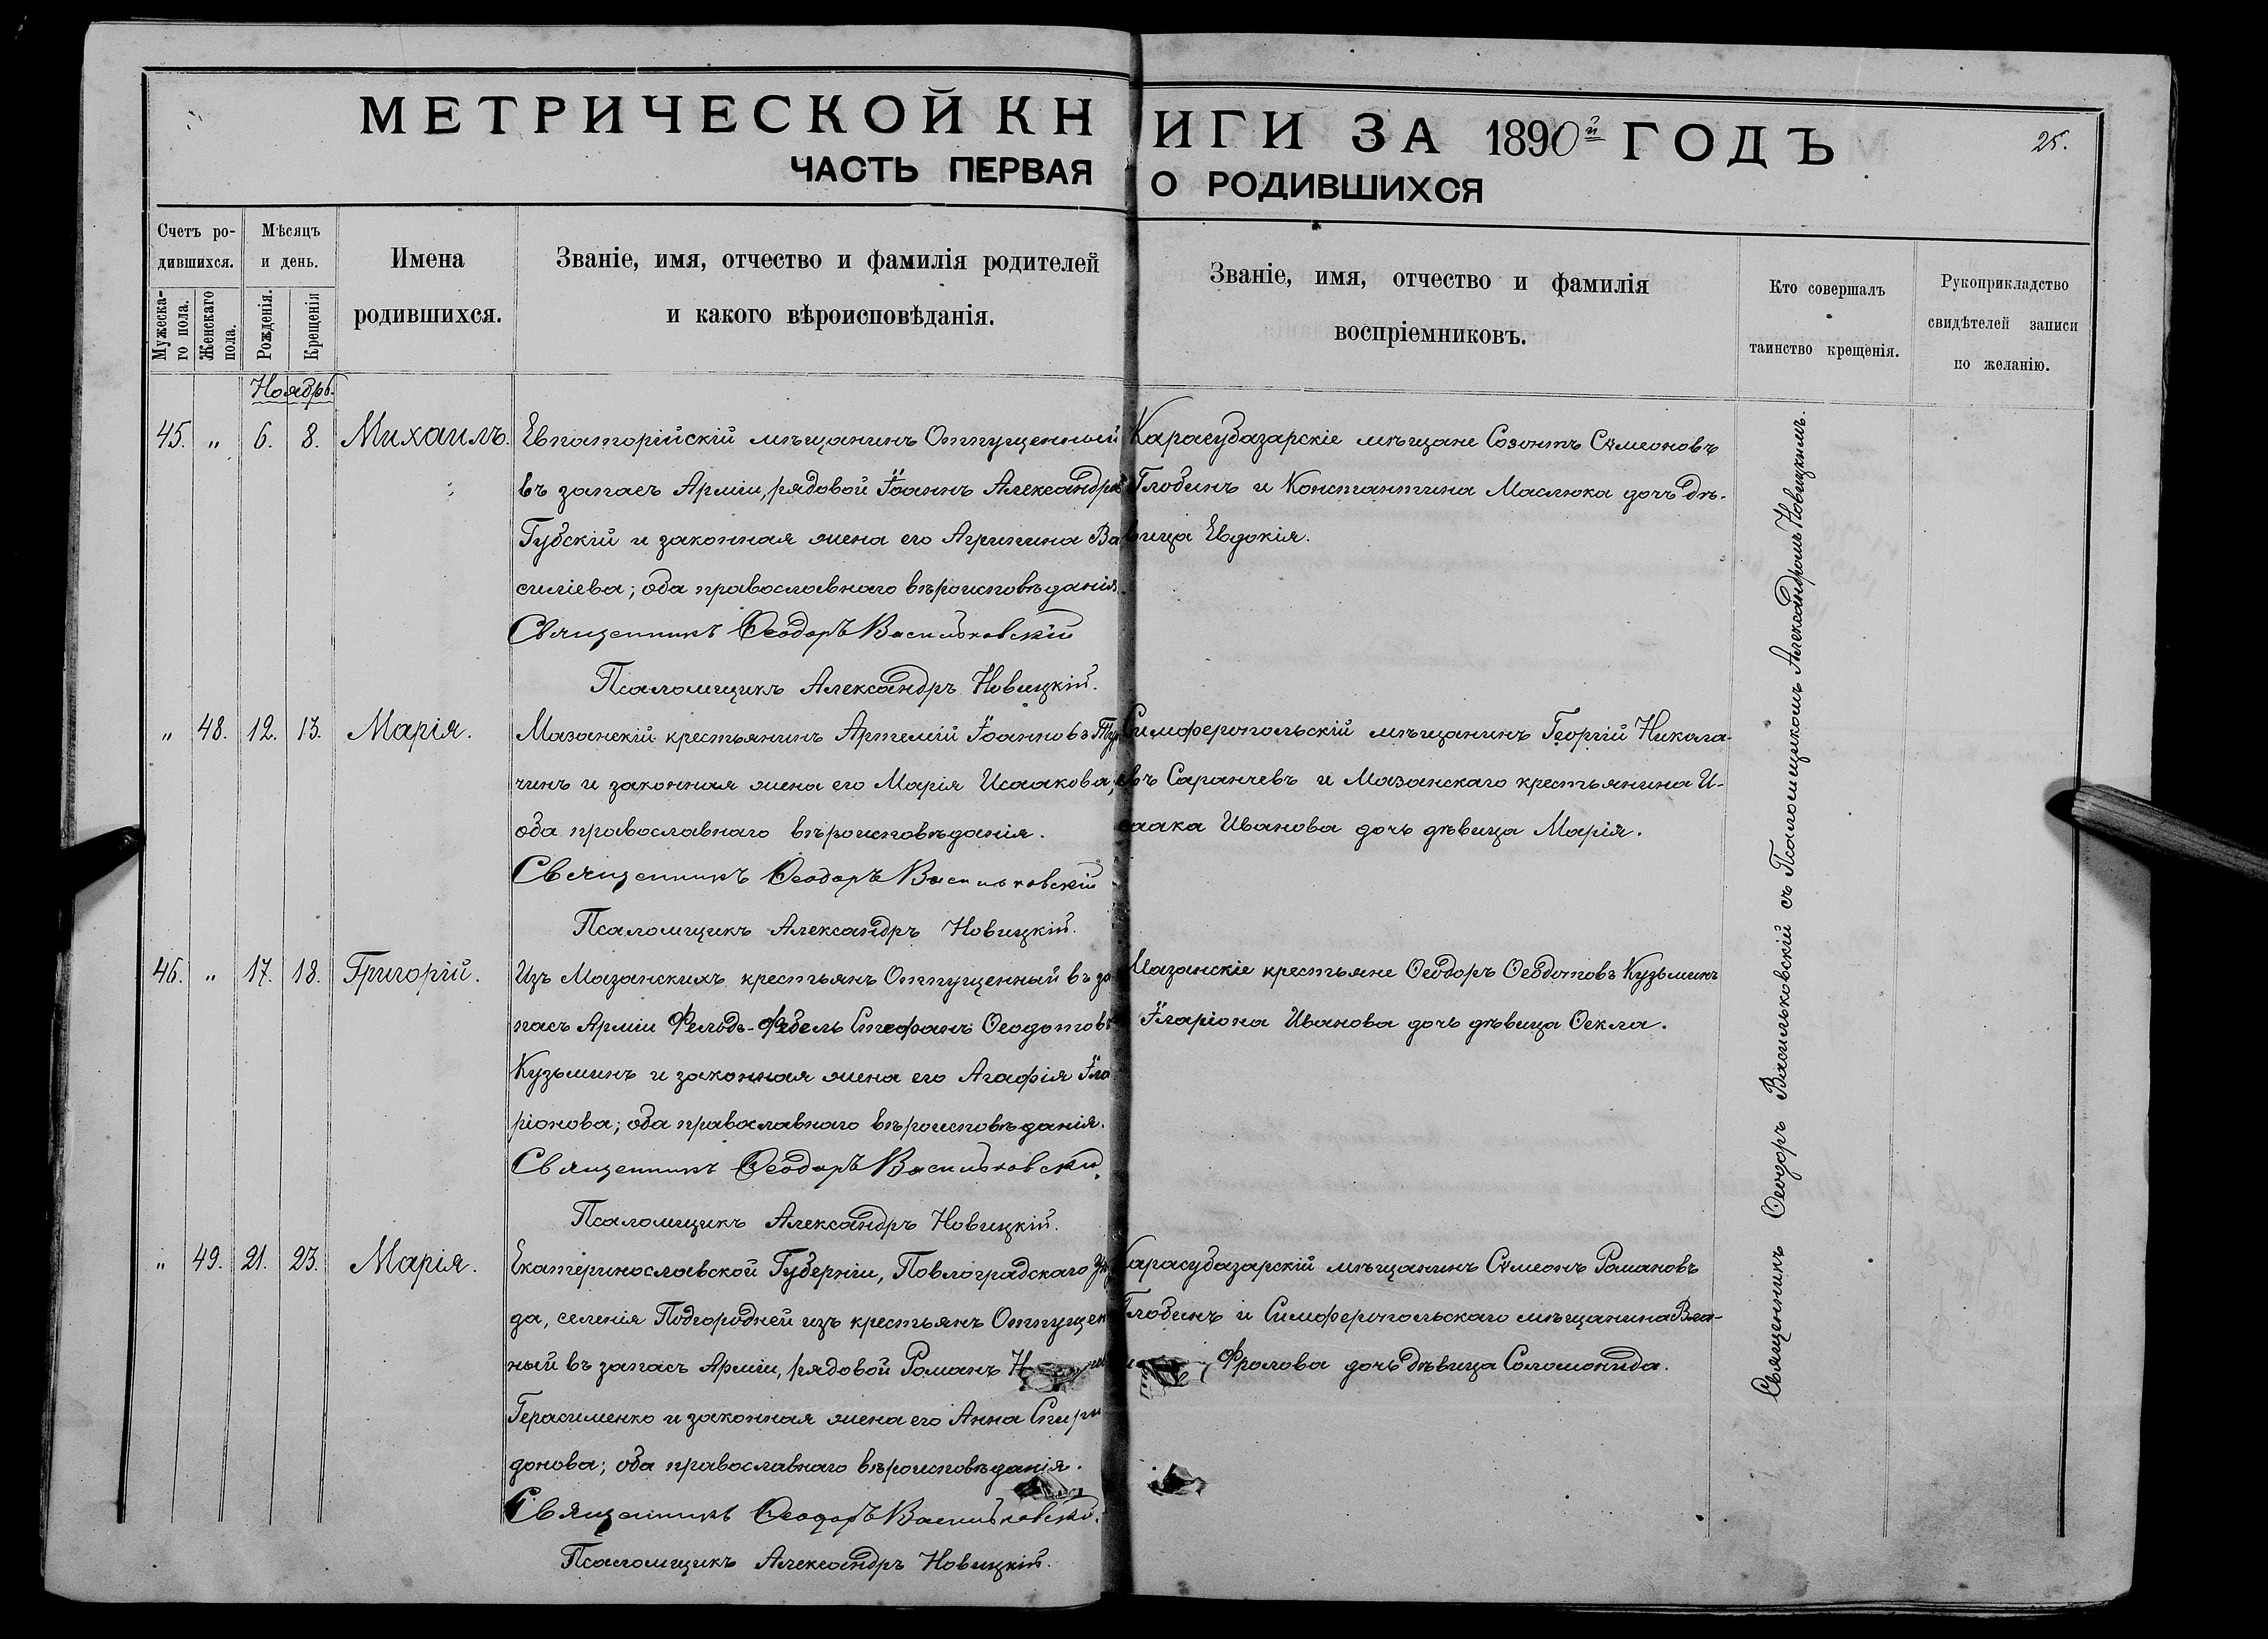 МЕТРИЧЕСКОЙ КНИГИ ЗА 1890й ГОДЪ
25.
ЧАСТЬ ПЕРВАЯ О РОДИВШИХСЯ
Счетъ ро-
дившихся.
Мужеска-
го пола.
Женскаго
пола.
Мѣсяцъ
и день.
Рожденія.
Крещенія
Имена
родившихся.
Званіе, имя, отчество и фамилія родителей
и какого вѣроисповѣданія.
Званіе, имя, отчество и фамилія
воспріемниковъ.
Кто совершалъ
таинство крещенія.
Рукоприкладство
свидѣтелей записи
по желанію.
Ноябрь.
45. " 6. 8. Михаилъ.
Евпаторійскій мѣщанинъ Отпущенный
въ запасъ Арміи, рядовой Іоаннъ Александровъ
Губскій и законная жена его Агрипина Ва
силіева; оба православнаго вѣроисповѣданія.
Священникъ Ѳеодоръ Васильковскій
Псаломщикъ Александръ Новицкій.
Карасубазарскіе мѣщане Созонтъ Сѵмеоновъ
Глобинъ и Константина Маслюка дочь дѣ-
вица Евдокія.
" 48. 12. 13. Марія.
Мазанскій крестьянинъ Артемій Іоанновъ
чинъ и законная жена его Марія Исаакова,
оба православнаго вѣроисповѣданія.
Священникъ Ѳеодоръ Васильковскій
Псаломщикъ Александръ Новицкій.
Симферопольскій мѣщанинъ Георгій Никола-
евъ Саранчевъ и Мазанскаго крестьянина И-
саака Иванова дочь дѣвица Марія.
46. " 17. 18. Григорій.
Изъ Мазанскихъ крестьянъ Отпущенный въ за
пасъ Арміи Фельдъ-Фебель Стефанъ Ѳеодотовъ
Кузьминъ и законная жена его Агафія Іла
ріонова; оба православнаго вѣроисповѣданія.
Священникъ Ѳеодоръ Васильковскій
Псаломщикъ Александръ Новицкій.
Мазанскіе крестьяне Ѳеодоръ Ѳеодотовъ Кузьминъ
Іларіона Иванова дочь дѣвица Ѳекла.
" 49. 21. 23. Марія.
Екатеринославской Губерніи, Павлоградскаго Уѣз
да, селенія Подгородней изъ крестьянъ Отпущен
ный въ запасъ Арміи, рядовой Романъ
Герасименко и законная жена его Анна Спири
донова; оба православнаго вѣроисповѣданія.
Священникъ Ѳеодоръ Васильковскій.
Псаломщикъ Александръ Новицкій.
Карасубазарскій мѣщанинъ Сѵмеонъ Романовъ
Глобинъ и Симферопольскаго мѣщанина
Фролова дочь дѣвица Соломонида.
Священникъ Ѳеодоръ Васильковскій съ Псаломщикомъ Александромъ Новицкимъ.